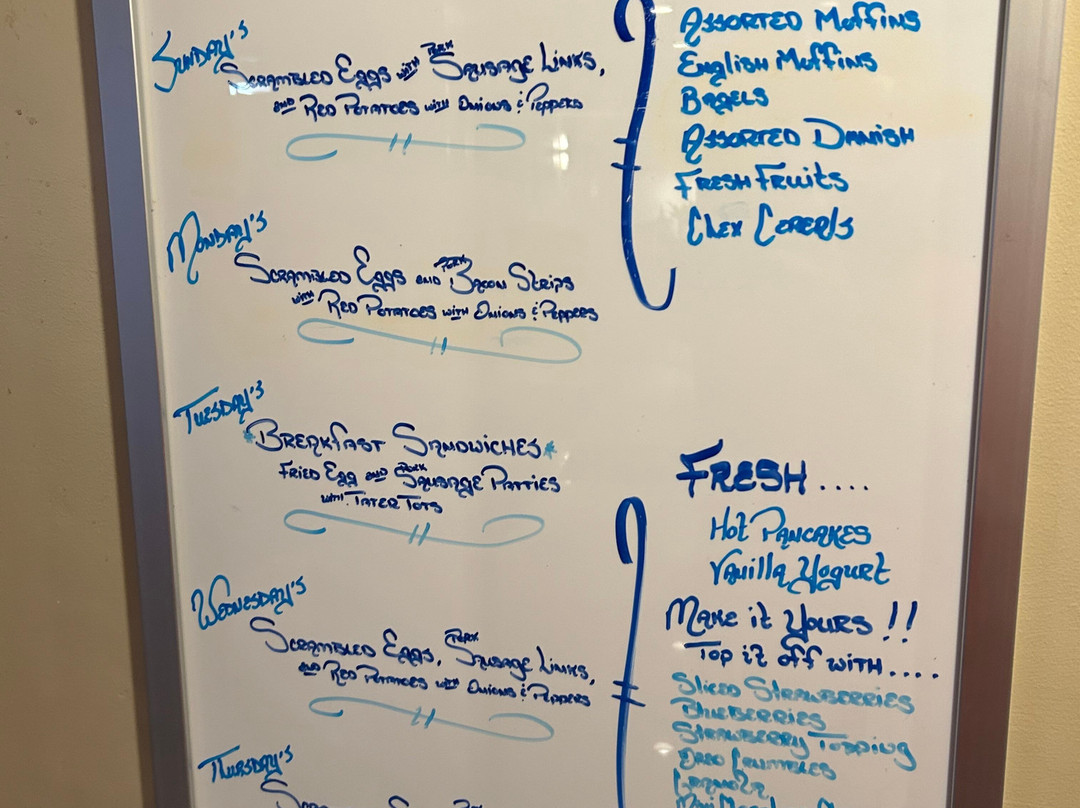 Sunday's
Scrambled Eggs with Pork Sausage Links,
and Red Potatoes with Onions & Peppers
Monday's
Scrambled Eggs and Pork Bacon Strips
with Red Potatoes with Onions & Peppers
Tuesday's
*Breakfast Sandwiches*
Fried Egg and Pork Sausage Patties
with Tater Tots
Wednesday's
Scrambled Eggs, Pork Sausage Links,
and Red Potatoes with Onions & Peppers
Thursday's
Assorted Muffins
English Muffins
Bagels
Assorted Danish
Fresh Fruits
Chex Cereals
Fresh....
Hot Pancakes
Vanilla Yogurt
Make it Yours!!
Top it off with....
Sliced Strawberries
Blueberries
Strawberry Topping
Oreo Crumbles
Granola
Mini